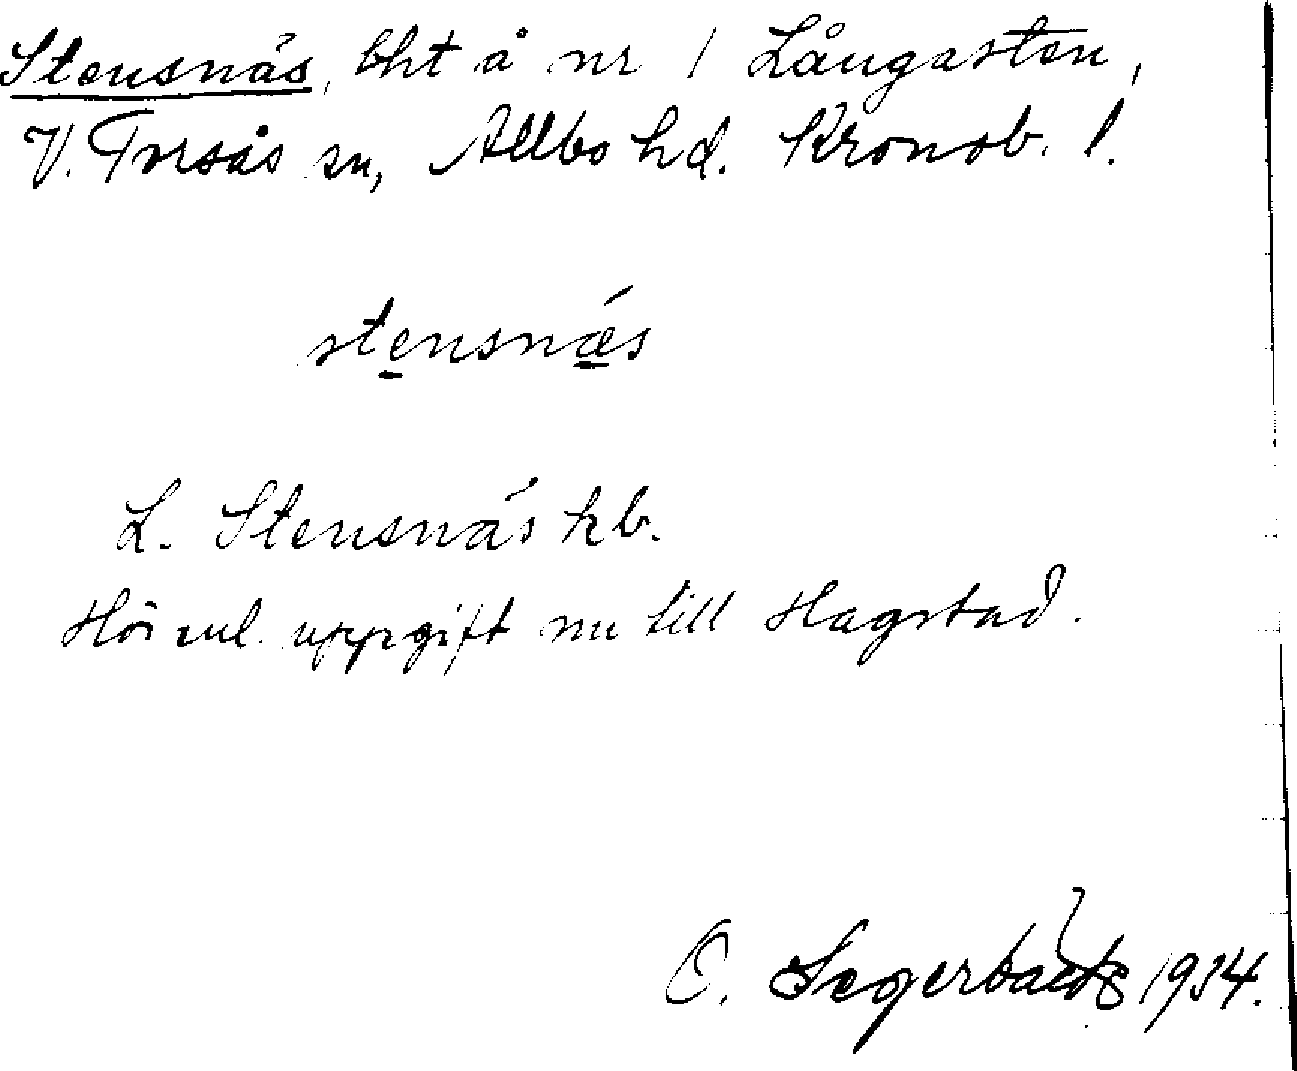 Stensnäs, bht å nr 1 Långasten,
V. Torsås sn, Allbo hd. Kronob. l.
stensnæs
L. Stensnäs kb.
Hör enl. uppgift nu till Hagstad.
O. Segerbäck 1934.